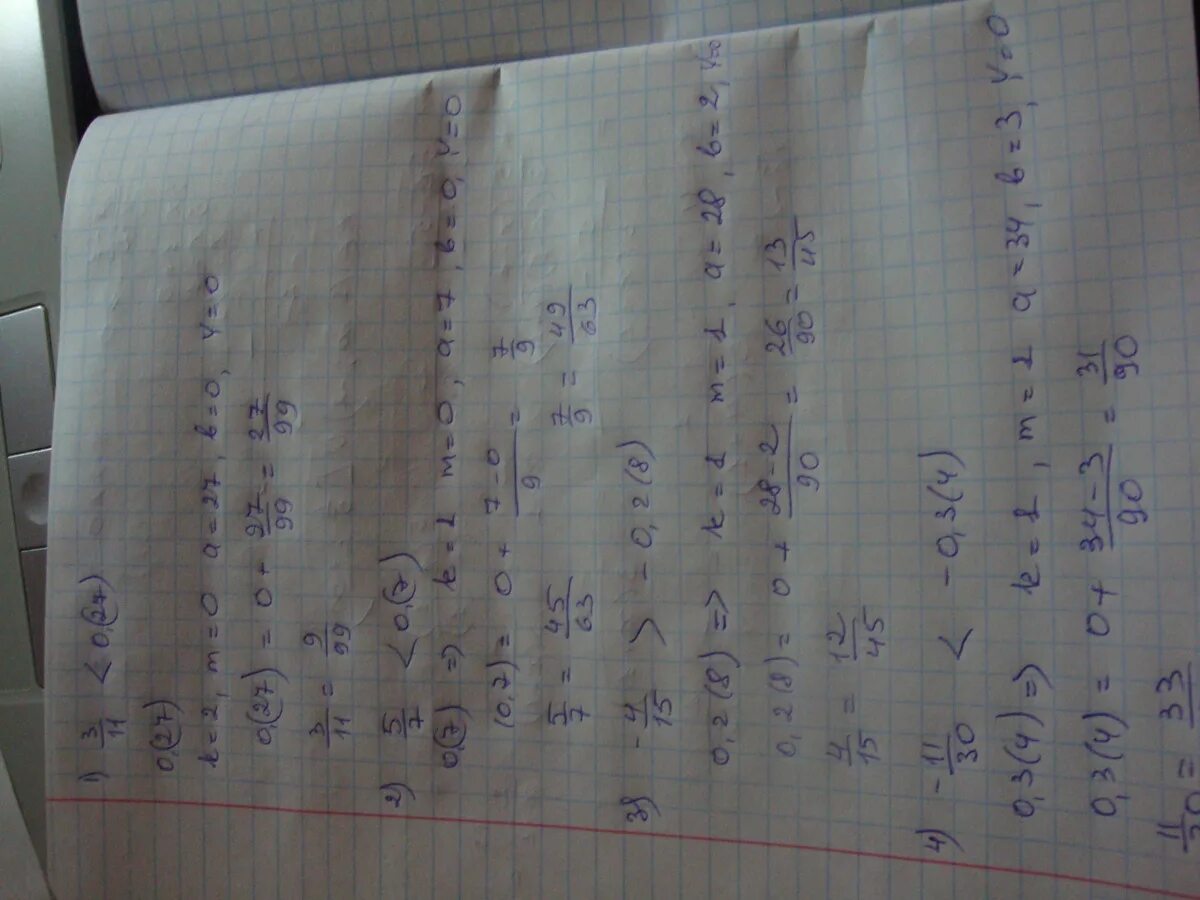 1) 3/11 < 0,(27)
0,(27)
k=2, m=0 a=27, b=0, Y=0
0,(27) = 0+ 27/99 = 27/99
3/11 = 9/99
2) 5/7 < 0,(7)
0,(7) => k=1 m=0, a=7, b=0, Y=0
(0,7)= 0+ 7-0/9 = 7/9
5/7 = 45/63 7/9 = 49/63
3) -4/15 > -0,2(8)
0,2(8) => k=1 m=1, a=28, b=2, Y=0
0,2(8)= 0+ 28-2/90 = 26/90 = 13/45
4/15 = 12/45
4) -11/30 < -0,3(4)
0,3(4) => k=1, m=1 a=34, b=3, Y=0
0,3(4) = 0+ 34-3/90 = 31/90
11/30 = 33